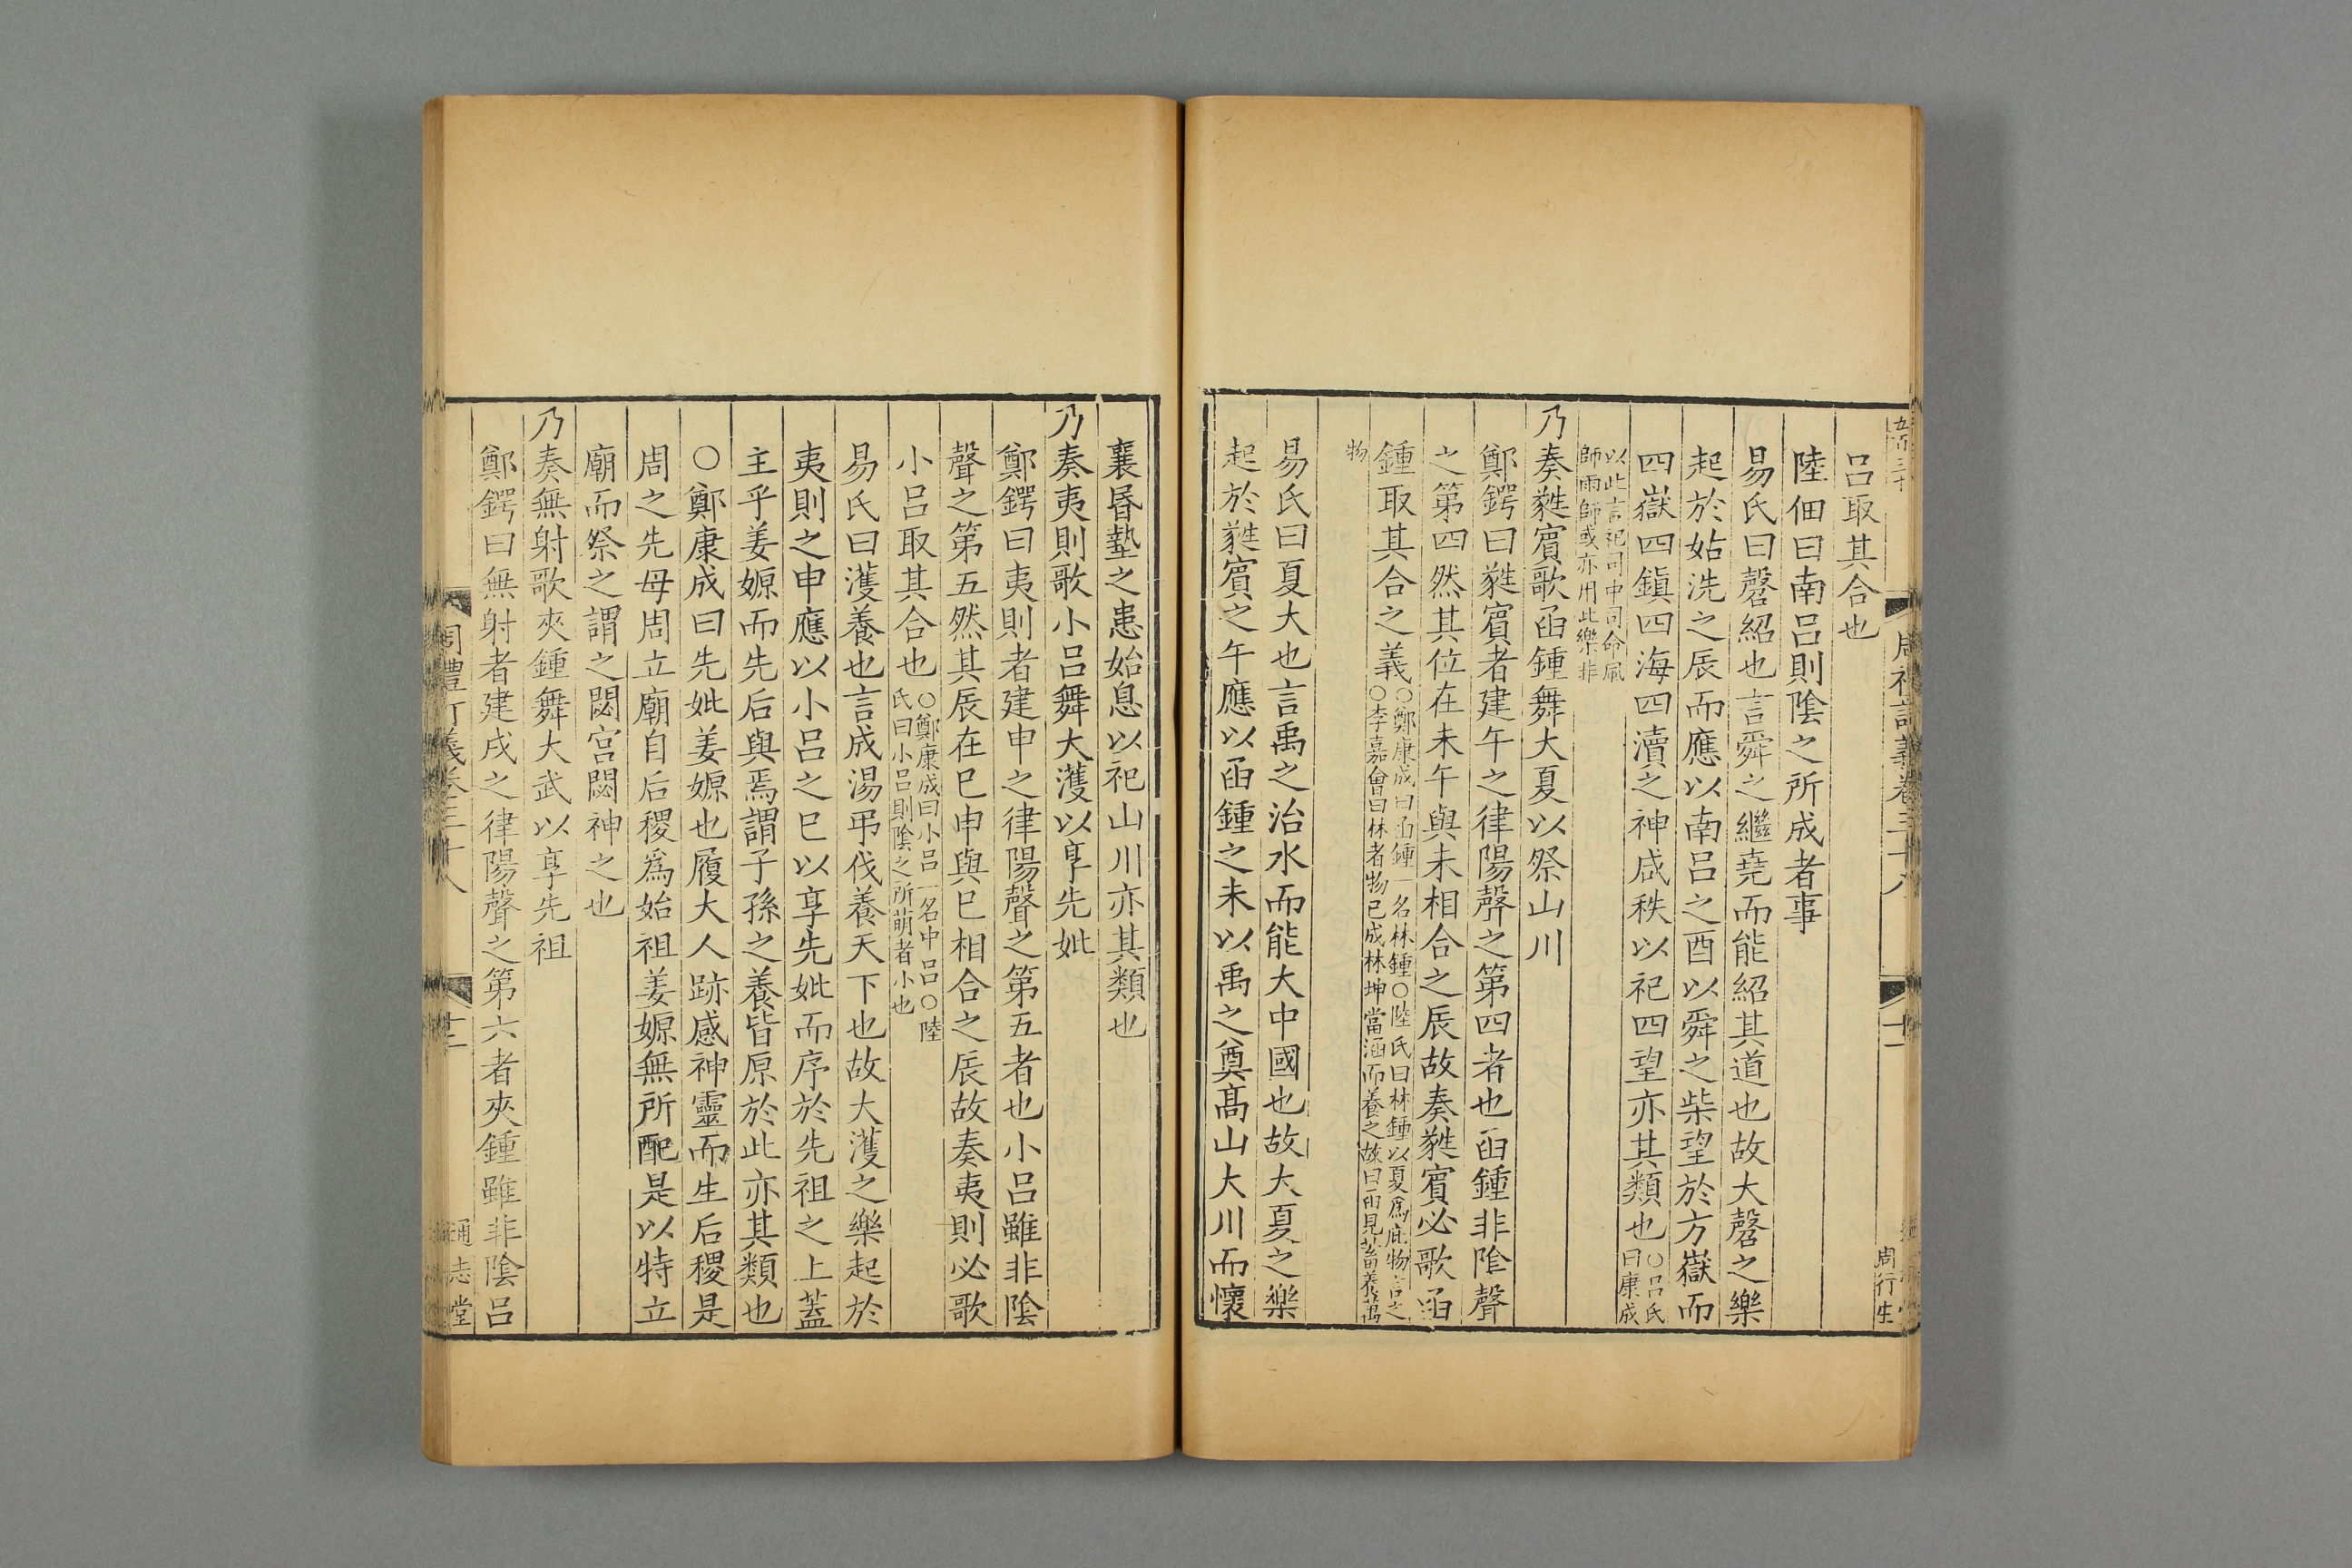 呂取其合也
陸佃曰南呂則陰之所成者事
易氏曰磬紹也言舜之繼堯而能紹其道也故大磬之樂
起於姑洗之辰而應以南呂之酉以舜之柴望於方嶽而
四嶽四鎮四海四瀆之神咸秩以祀四望亦其類也○呂氏
曰康成
以此言祀司中司命風
師雨師或亦用此樂非
乃奏蕤賓歌函鍾舞大夏以祭山川
鄭鍔曰蕤賓者建午之律陽聲之第四者也函鍾非陰聲
之第四然其位在未午與未相合之辰故奏蕤賓必歌函
鍾取其合之義○鄭康成曰函鍾一名林鍾○陸氏曰林鍾以夏為庇物言之
○李嘉會曰林者物已成林坤當涵而養之故曰函見蓄養萬
物
易氏曰夏大也言禹之治水而能大中國也故大夏之樂
起於蕤賓之午應以函鍾之未以禹之奠高山大川而懷
周行生
襄昬墊之患始息以祀山川亦其類也
乃奏夷則歌小呂舞大濩以享先妣
鄭鍔曰夷則者建申之律陽聲之第五者也小呂雖非陰
聲之第五然其辰在巳申與巳相合之辰故奏夷則必歌
小呂取其合也○鄭康成曰小呂一名中呂○陸
氏曰小呂則陰之所萌者小也
易氏曰濩養也言成湯弔伐養天下也故大濩之樂起於
夷則之申應以小呂之巳以享先妣而序於先祖之上蓋
主乎姜嫄而先后與焉謂子孫之養皆原於此亦其類也
○鄭康成曰先妣姜嫄也履大人跡感神靈而生后稷是
周之先母周立廟自后稷為始祖姜嫄無所配是以特立
廟而祭之謂之閟宮閟神之也
乃奏無射歌夾鍾舞大武以享先祖
鄭鍔曰無射者建戌之律陽聲之第六者夾鍾雖非陰呂
通志堂